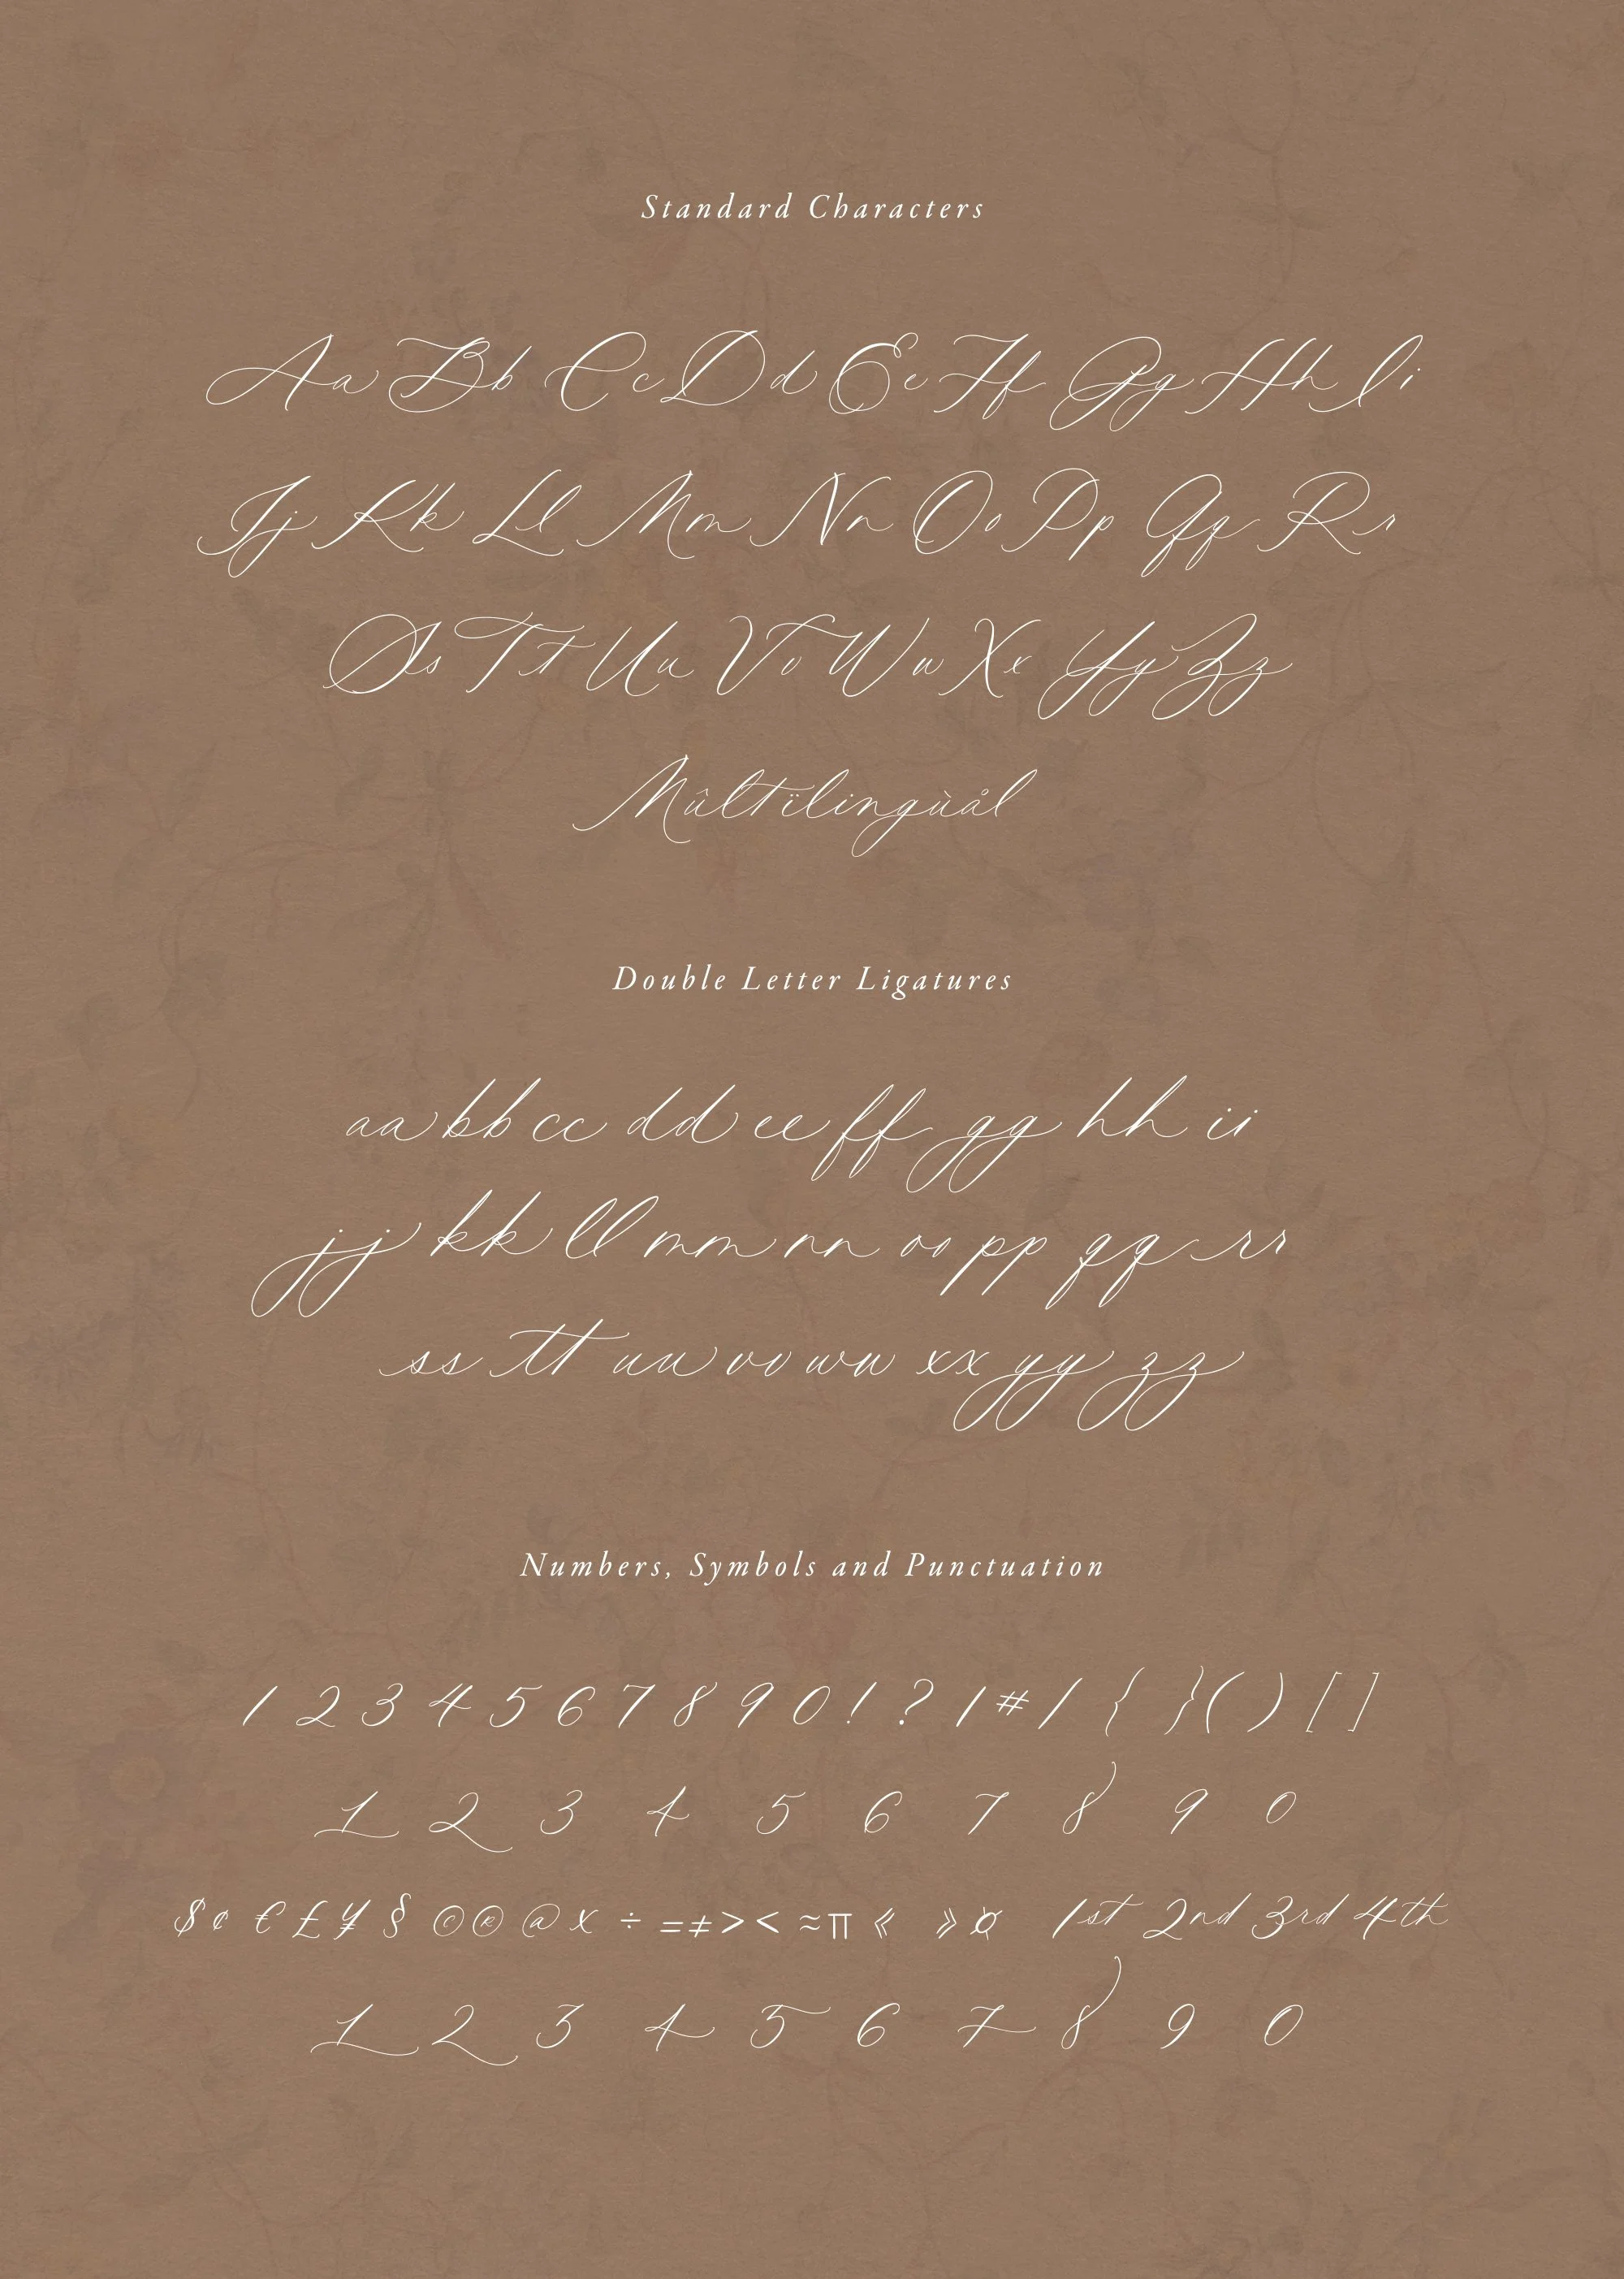 Standard Characters
Aa Bb Cc Dd Ee Ff Gg Hh Ii
Jj Kk Ll Mm Nn Oo Pp Qq Rr
Ss Tt Uu Vv Ww Xx Yy Zz
Mûltïlingùål
Double Letter Ligatures
aa bb cc dd ee ff gg hh ii
jj kk ll mm nn oo pp qq rr
ss tt uu vv ww xx yy zz
Numbers, Symbols and Punctuation
1 2 3 4 5 6 7 8 9 0 ! ? | # / { } ( ) [ ]
1 2 3 4 5 6 7 8 9 0
$ ¢ € £ ¥ § © ® @ × ÷ = ≠ > < ≈ π « » ¤ 1st 2nd 3rd 4th
1 2 3 4 5 6 7 8 9 0